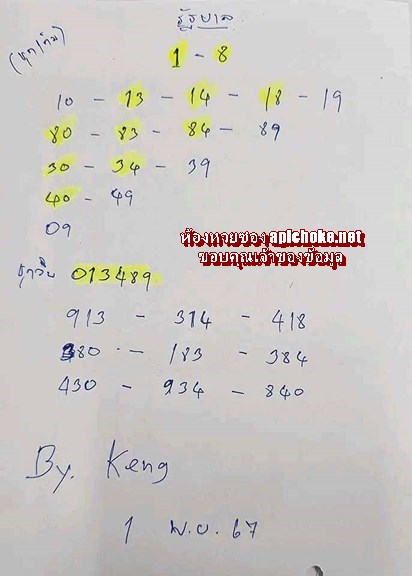 รัฐบาล
(ชุดเต็ม)
1 - 8
10 - 13 - 14 - 18 - 19
80 - 83 - 84 - 89
30 - 34 - 39
40 - 49
09
ห้องหวยซอง apichoke.net
ขอบคุณเจ้าของข้อมูล
013489
913 - 314 - 418
380 - 183 - 384
430 - 934 - 840
By. Keng
1 พ.ย. 67